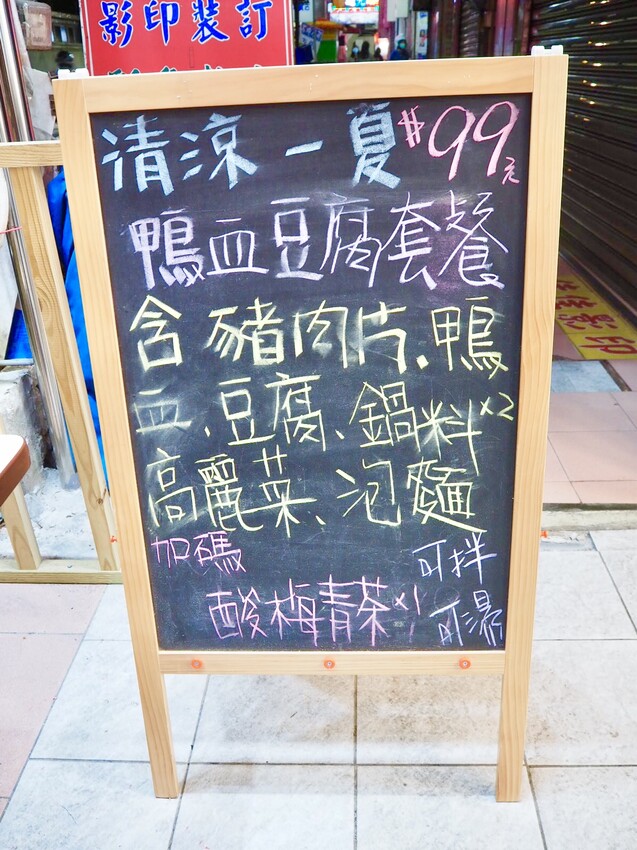 影印裝訂
清涼一夏 $99元
鴨血豆腐套餐
含 豬肉片、鴨
血、豆腐、鍋料x2
高麗菜、泡麵
加碼
可拌
酸梅青茶x1
可湯